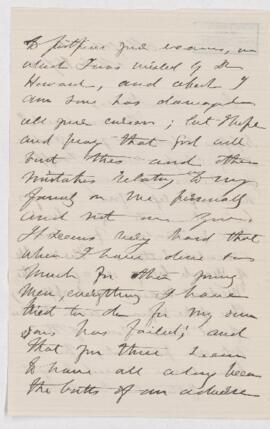 to postpone your exams, in
which I was misled by Dr
Howard, and which I
am sure has damaged
all your career; but I hope
and pray that God will
visit this and other
mistakes relating to my
family on me personally
and not on you.
It seems very hard that
when I have done so
much for other young
men, everything I have
tried to do for my own
sons has failed; and
that you three seem
to have all along been
the butts of an adverse